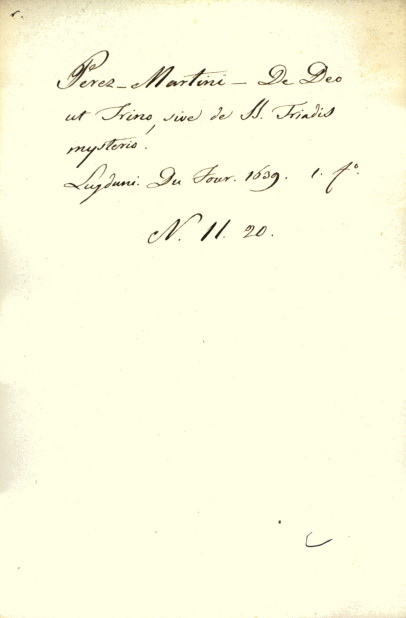 Perez - Martini - De Deo
ut Trino, sive de SS. Triadis
mysterio.
Lugduni. Du Four. 1639. 1. fº.
N. 11. 20.